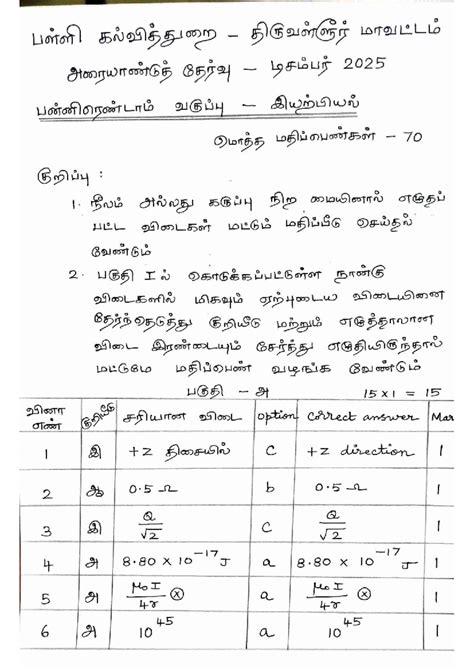 பள்ளி கல்வித்துறை – திருவள்ளூர் மாவட்டம்
அரையாண்டுத் தேர்வு – டிசம்பர் 2025
பன்னிரெண்டாம் வகுப்பு – இயற்பியல்
மொத்த மதிப்பெண்கள் – 70
குறிப்பு :
1. நீலம் அல்லது கருப்பு நிற மையினால் எழுதப்
பட்ட விடைகள் மட்டும் மதிப்பீடு செய்தல்
வேண்டும்
2. பகுதி I ல் கொடுக்கப்பட்டுள்ள நான்கு
விடைகளில் மிகவும் ஏற்புடைய விடையினை
தேர்ந்தெடுத்து குறியீடு மற்றும் எழுத்தாலான
விடை இரண்டையும் சேர்த்து எழுதியிருந்தால்
மட்டுமே மதிப்பெண் வழங்க வேண்டும்
பகுதி – அ 15 x 1 = 15
வினா எண் குறியீடு சரியான விடை option correct answer Mar
1 இ +Z திசையில் c +Z direction 1
2 ஆ 0.5 Ω b 0.5 Ω 1
3 இ Q/√2 c Q/√2 1
4 அ 8.80 × 10⁻¹⁷ J a 8.80 × 10⁻¹⁷ J 1
5 அ μ₀I/4r ⊗ a μ₀I/4r ⊗ 1
6 அ 10⁴⁵ a 10⁴⁵ 1